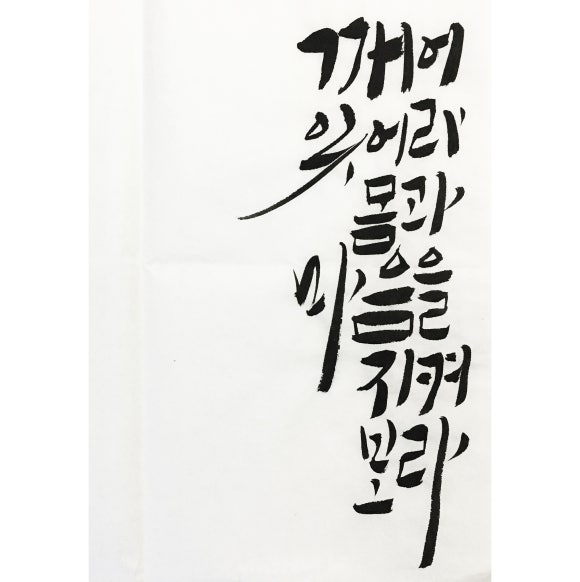 깨어
있어라
몸과
마음을
지켜
보라